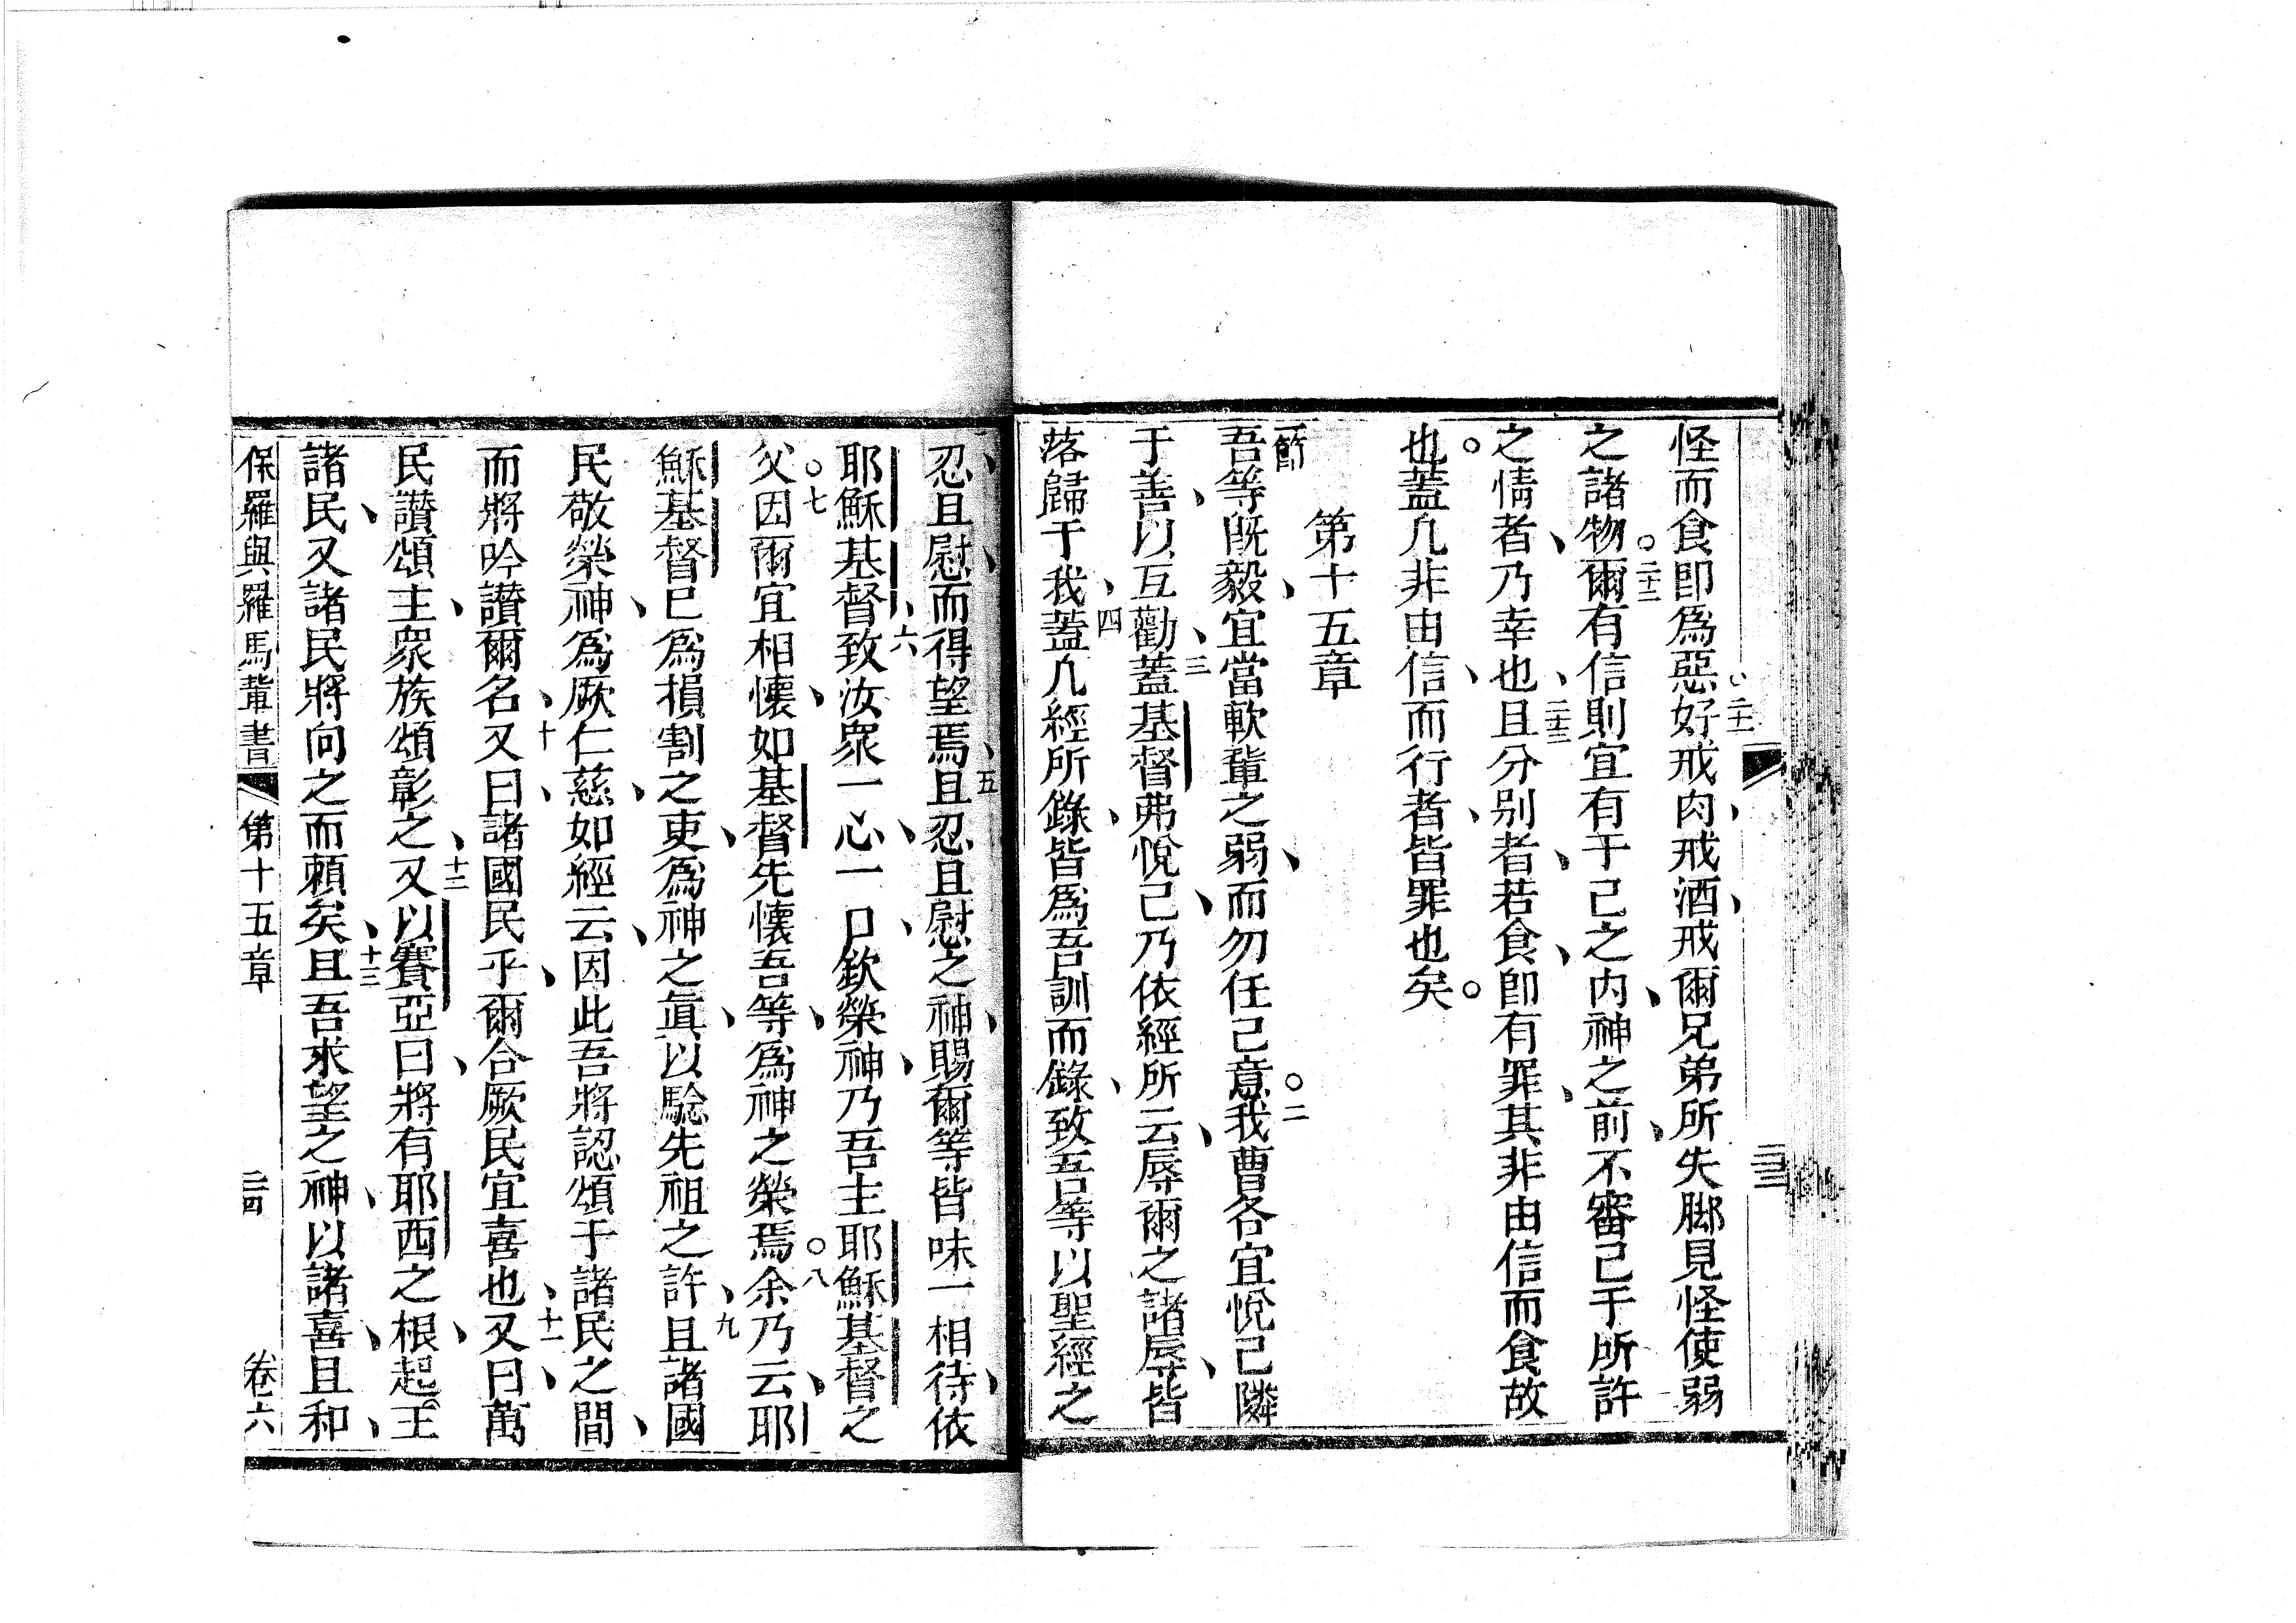 怪而食卽爲惡二十一好戒肉戒酒戒爾兄弟所失脚見怪使弱
之諸物二十二爾有信則宜有于己之內神之前不審己于所許
之情者乃幸也二十三且分别者若食卽有罪其非由信而食故
也蓋凡非由信而行者皆罪也矣
第十五章
一節吾等旣毅宜當軟軰之弱而勿任己意二我曹各宜悅己隣
于善以互勸三蓋基督弗悅己乃依經所云辱爾之諸辱皆
落歸于我四蓋凡經所錄皆爲吾訓而錄致吾等以聖經之
三十三
忍且慰而得望焉五且忍且慰之神賜爾等皆味一相待依
耶穌基督六致汝衆一心一口欽榮神乃吾主耶穌基督之
父七因爾宜相懷如基督先懷吾等爲神之榮焉八余乃云耶
穌基督已爲損割之吏爲神之眞以騐先祖之許九且諸國
民敬榮神爲厥仁慈如經云因此吾將認頌于諸民之間
而將吟讚爾名十又曰諸國民乎爾合厥民宜喜也十一又曰萬
民讚頌主衆族頌彰之十二又以賽亞曰將有耶西之根起王
諸民又諸民將向之而賴矣十三且吾求望之神以諸喜且和
保羅與羅馬軰書 第十五章 三十四 卷六